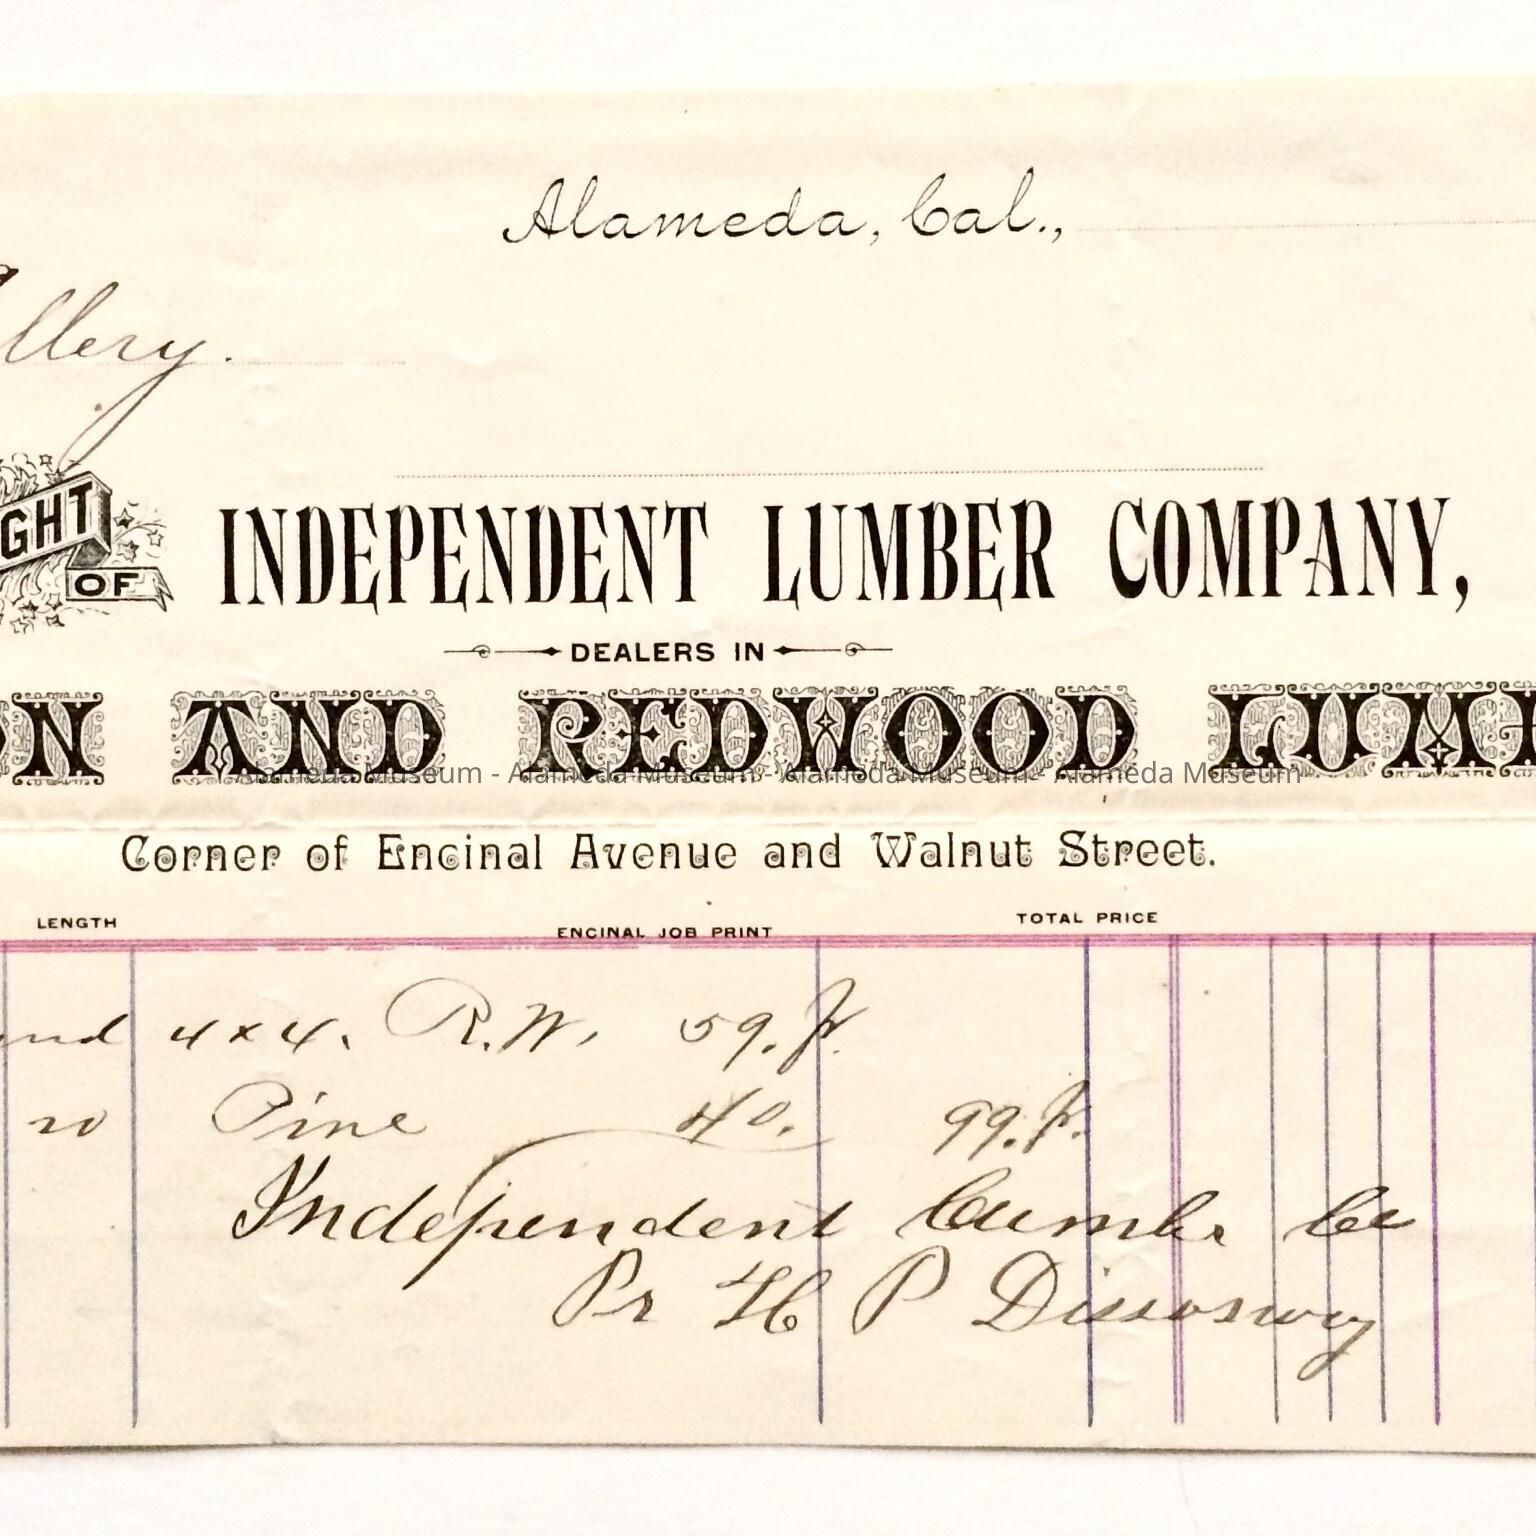 Alameda, Cal.,
llery.
GHT
OF
INDEPENDENT LUMBER COMPANY,
DEALERS IN
ON AND REDWOOD LUM
Alameda Museum - Alameda Museum - Alameda Museum - Alameda Museum
Corner of Encinal Avenue and Walnut Street.
LENGTH ENCINAL JOB PRINT TOTAL PRICE
4x4. R.W. 59. ft.
20 Pine 40. 99. ft.
Independent Lumbr Co
Pr H P Dissosway